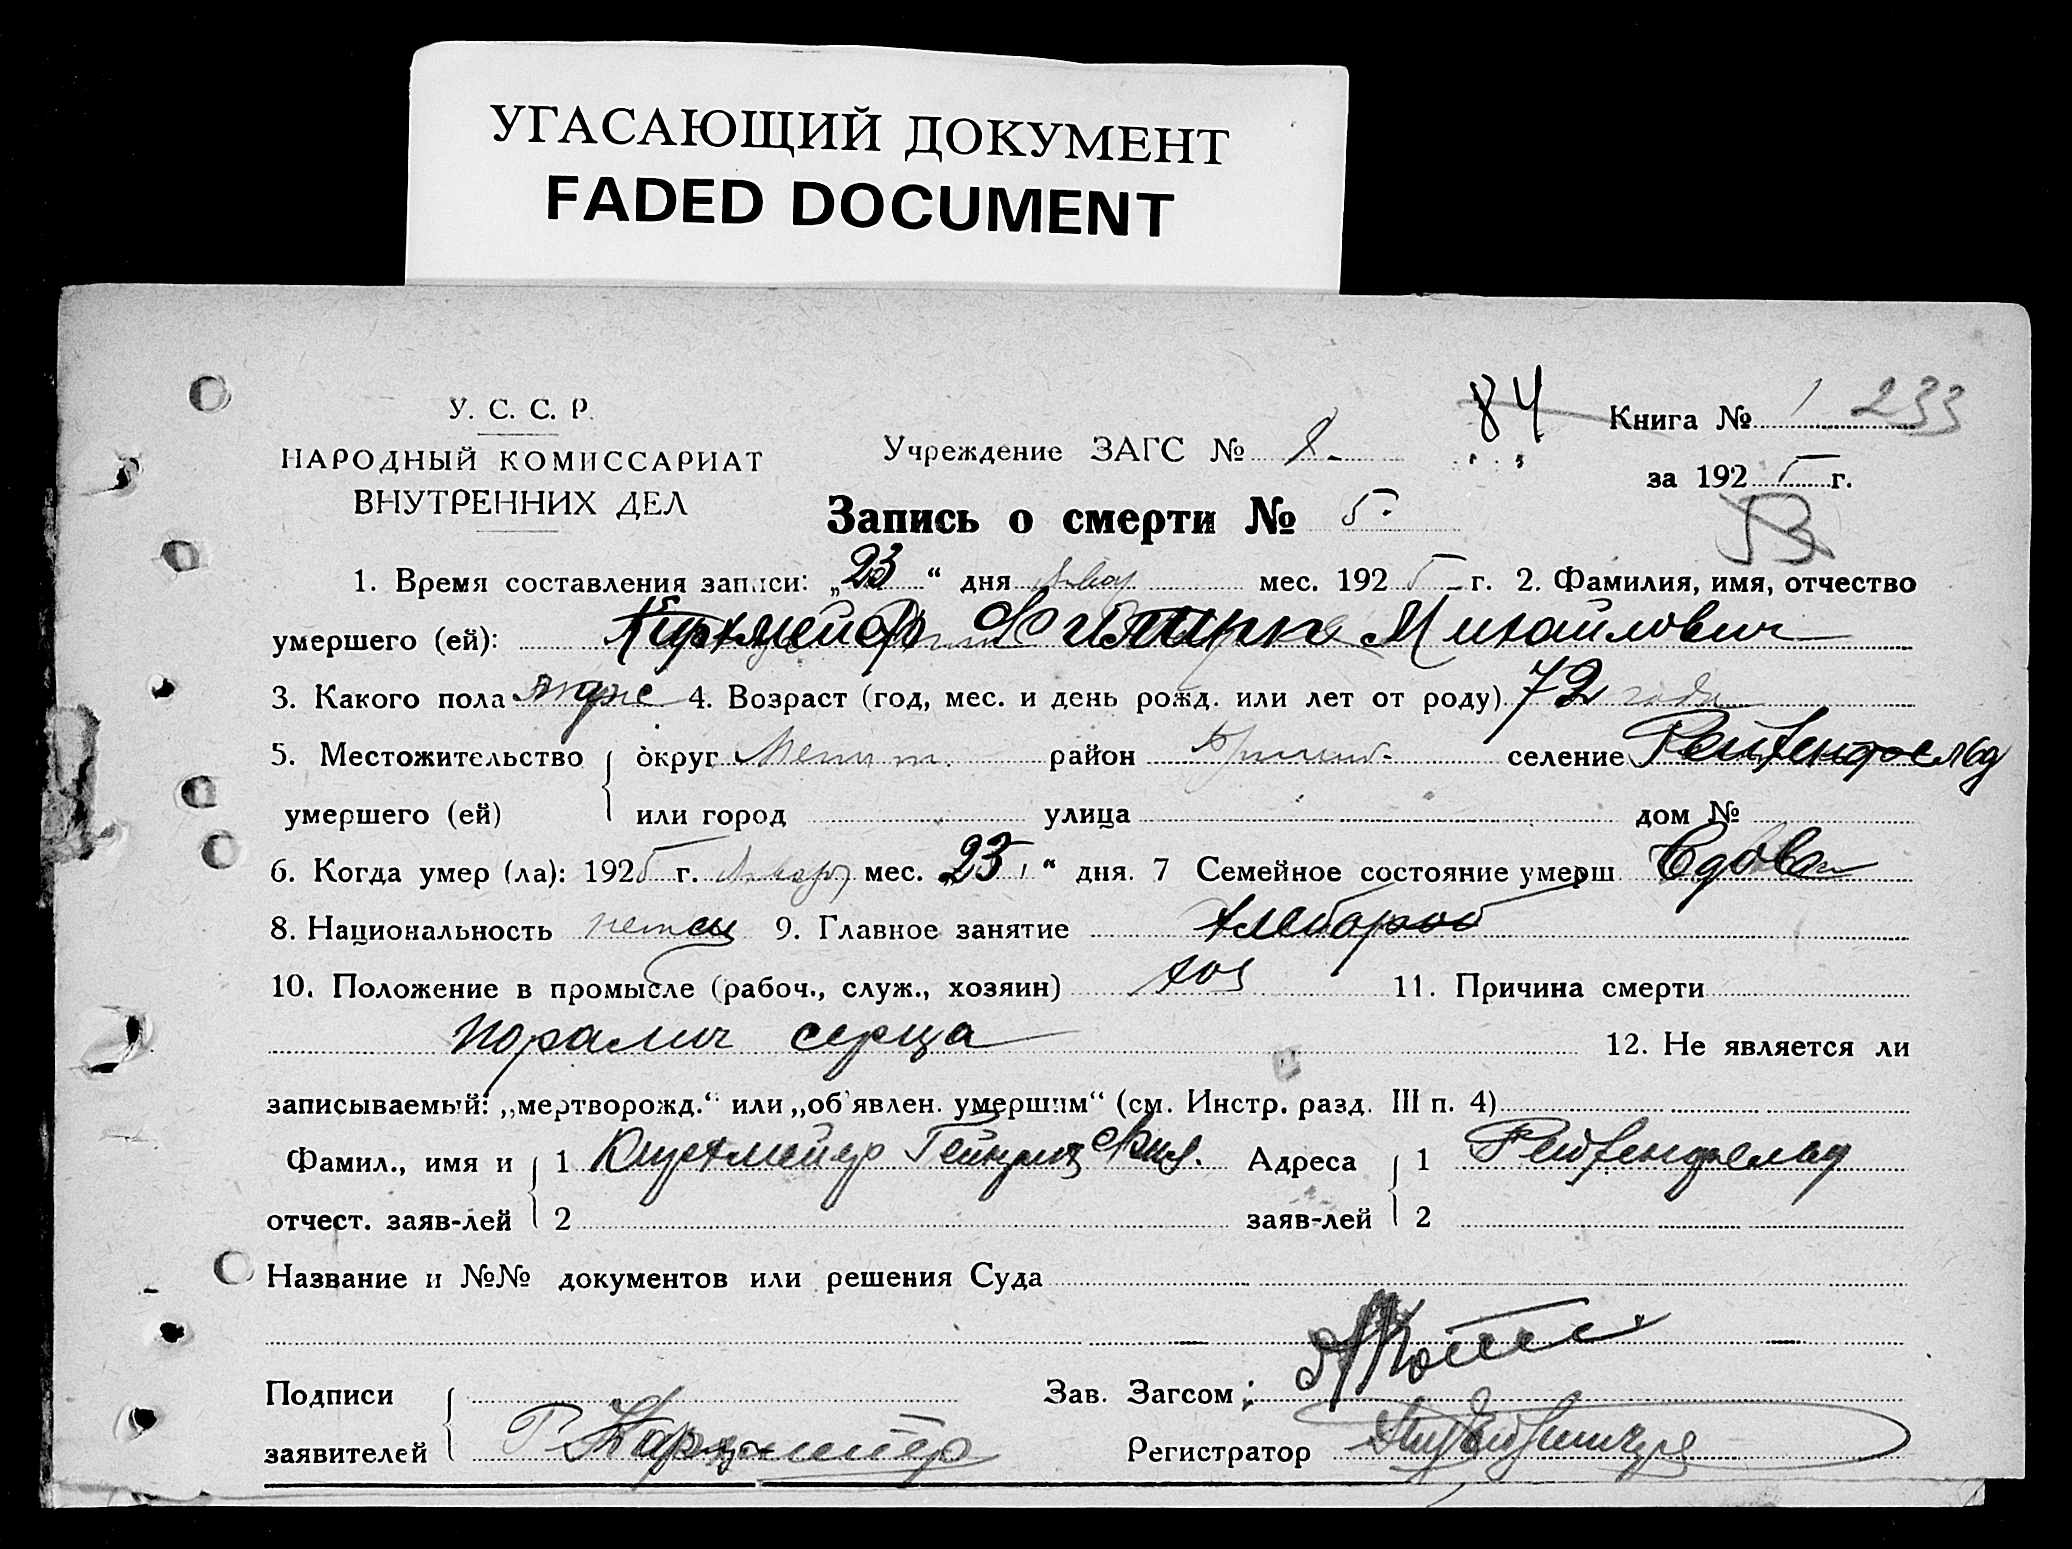 УГАСАЮЩИЙ ДОКУМЕНТ
FADED DOCUMENT
У. С. С. Р.
НАРОДНЫЙ КОМИССАРИАТ
ВНУТРЕННИХ ДЕЛ
84
Книга № 1 233
Учреждение ЗАГС № 8
за 1925 г.
Запись о смерти № 5
1. Время составления записи: „23“ дня Январ мес. 1925 г. 2. Фамилия, имя, отчество
умершего (ей): Михайлович
3. Какого пола 4. Возраст (год, мес. и день рожд. или лет от роду) 72 года
5. Местожительство округ Мелит. район Пришиб. селение Рейхенфельд
умершего (ей) или город улица дом №
6. Когда умер (ла): 1925 г. Январ мес. „23“ дня. 7 Семейное состояние умерш Вдовец
8. Национальность немец 9. Главное занятие хлебороб
10. Положение в промысле (рабоч., служ., хозяин) хоз 11. Причина смерти
поралич серца 12. Не является ли
записываемый: „мертворожд.“ или „об'явлен. умершим“ (см. Инстр. разд. III п. 4)
Фамил., имя и 1 Кирхмейер Гейнрих Адреса 1 Рейхенфельд
отчест. заяв-лей 2 заяв-лей 2
Название и №№ документов или решения Суда
Подписи Зав. Загсом:
заявителей Регистратор